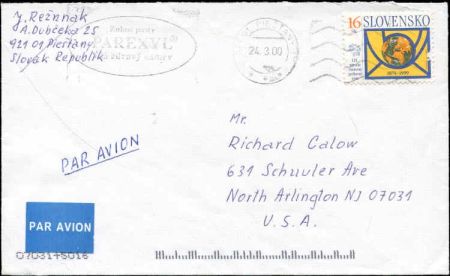 J. Režnnák
A. Dubčeka 25
921 01 Piešťany
Slovak Republik
Zubné pasty
PAREXYL
zdravý úsmev
24.3.00
16 SLOVENSKO
1874-1999
PAR AVION
Mr.
Richard Calow
631 Schuyler Ave
North Arlington NJ 07031
U.S.A.
PAR AVION
07031+5016